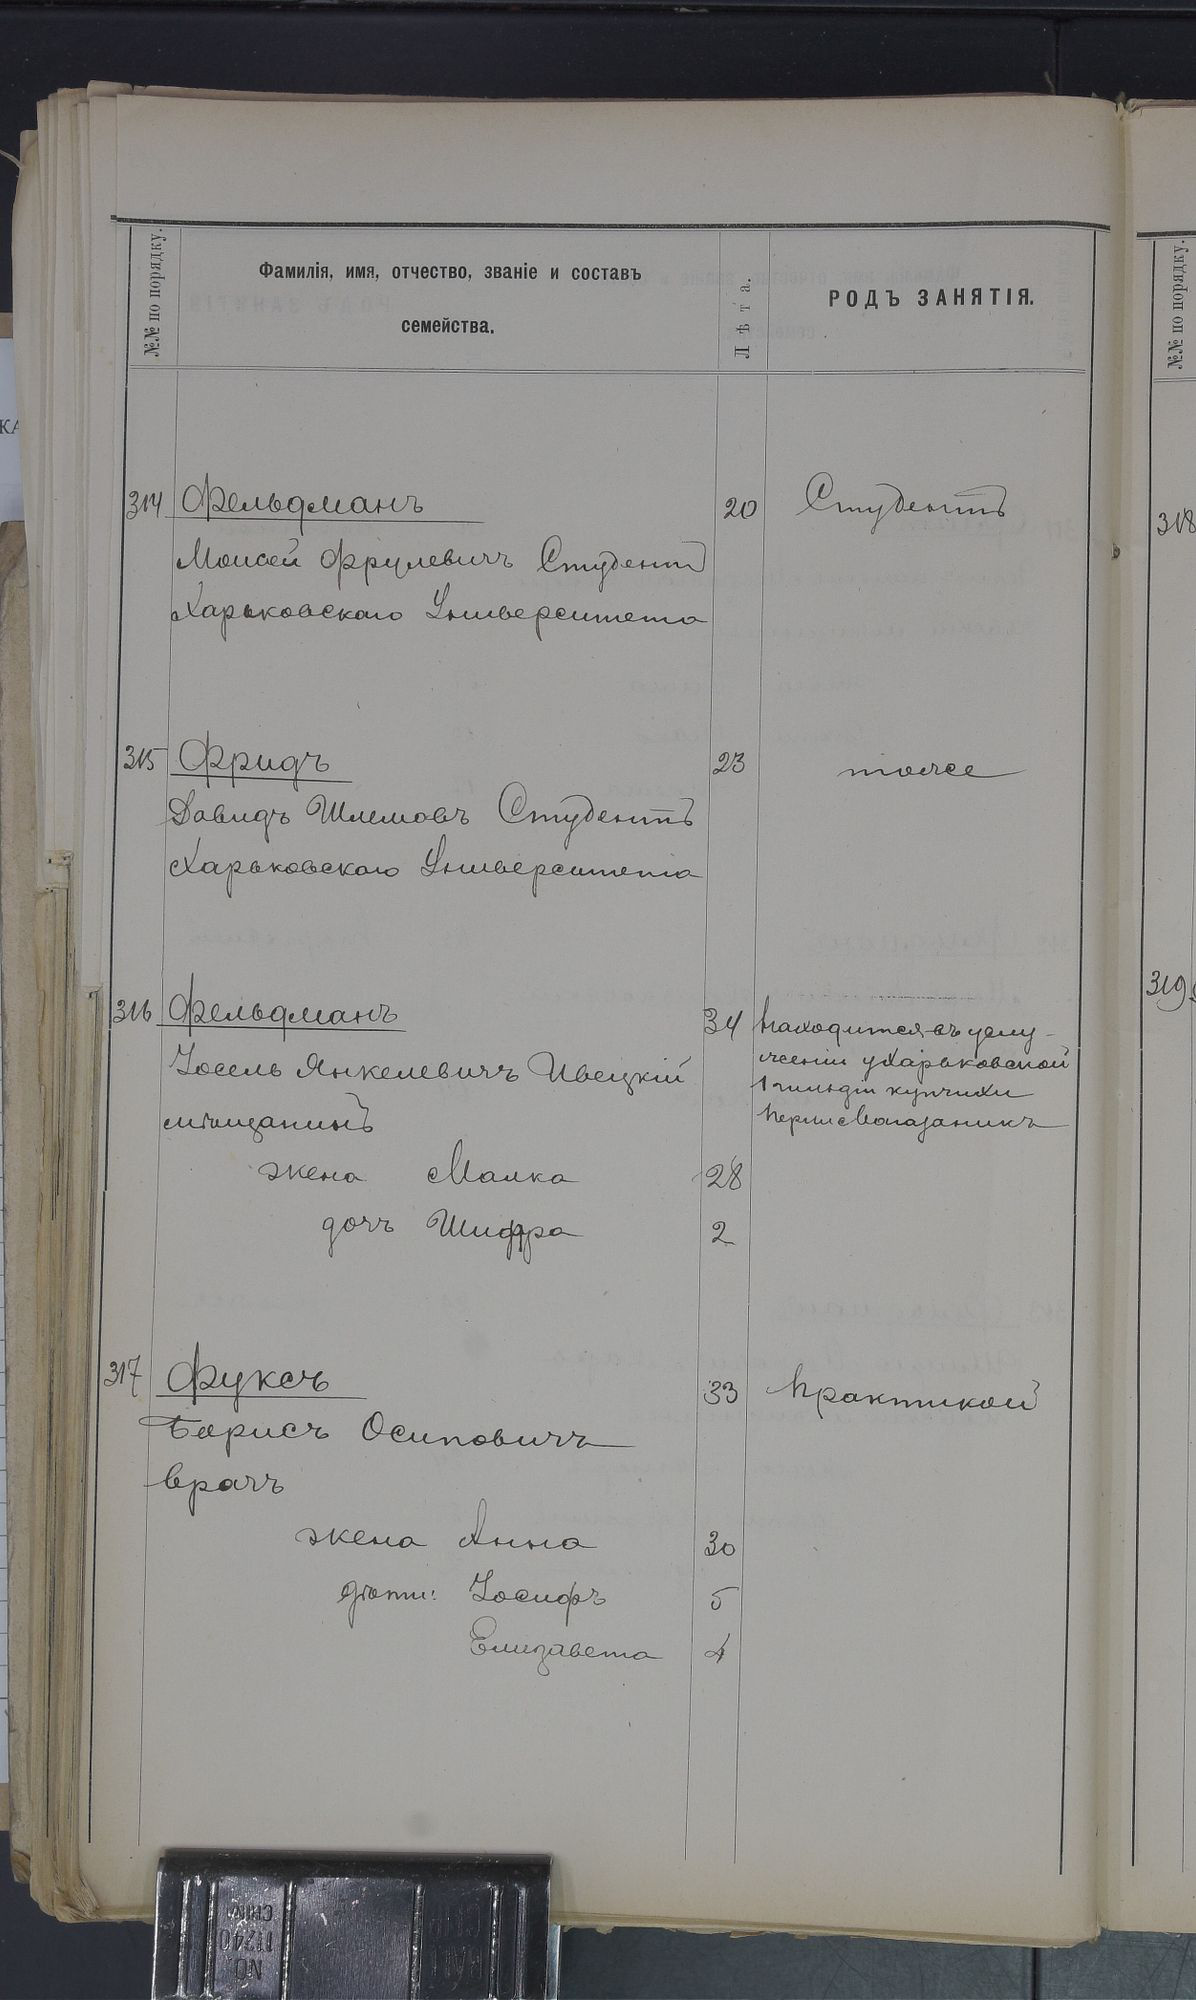 №№ по порядку.
Фамилія, имя, отчество, званіе и составъ
семейства.
Лѣта.
РОДЪ ЗАНЯТІЯ.
№№ по порядку.
314 Фельдманъ 20 Студентъ
Моисей Фрулевичъ Студентъ
Харьковскаго Университета
315 Фридъ 23 тоже
Давидъ Шлемовъ Студентъ
Харьковскаго Университета
316 Фельдманъ 34 Находится въ услу-
Іосель Янкелевичъ Ивецкій
женіи у Харьковской
мѣщанинъ
1 гильдіи купчихи
жена Малка 28
дочь Шифра 2
317 Фуксъ 33 Практикой
Борисъ Осиповичъ
врачъ
жена Анна 30
дѣти: Іосифъ 5
Елизавета 4
318
319
КА
NO.
11240
CHIN